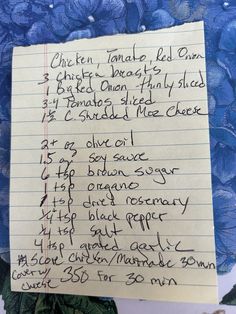 Chicken, Tomato, Red Onion
3 chicken breasts
1 Big Red Onion - thinly sliced
3-4 Tomatos sliced
1½ C. Shredded Moz Cheese
2+ oz olive oil
1.5 oz soy sauce
6 tsp brown sugar
1 tsp oregano
1 tsp dried rosemary
¼ tsp black pepper
¼ tsp salt
4 tsp grated garlic
Score Chicken/Marinade 30 min
Cover w/ cheese 350 for 30 min